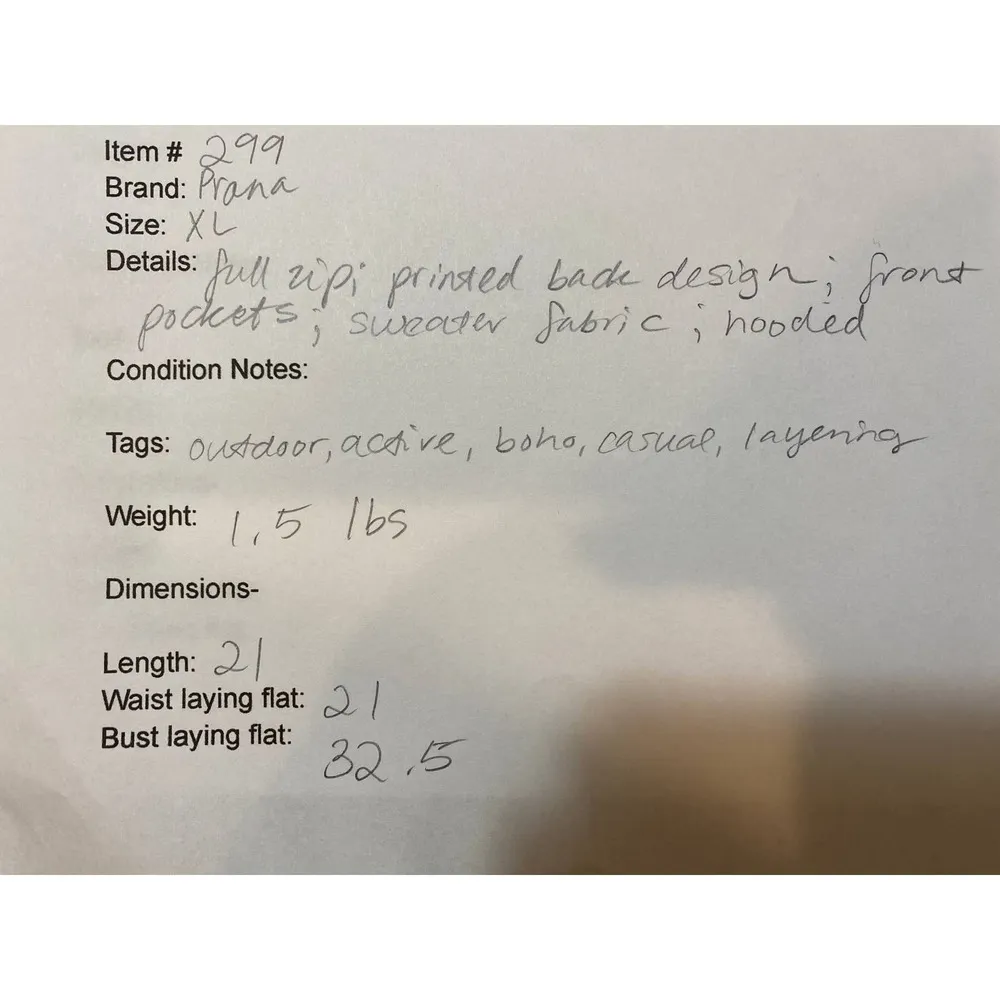 Item # 299
Brand: Prana
Size: XL
Details: full zip; printed back design; front
pockets; sweater fabric; hooded
Condition Notes:
Tags: outdoor, active, boho, casual, layering
Weight: 1.5 lbs
Dimensions-
Length: 21
Waist laying flat: 21
Bust laying flat: 32.5